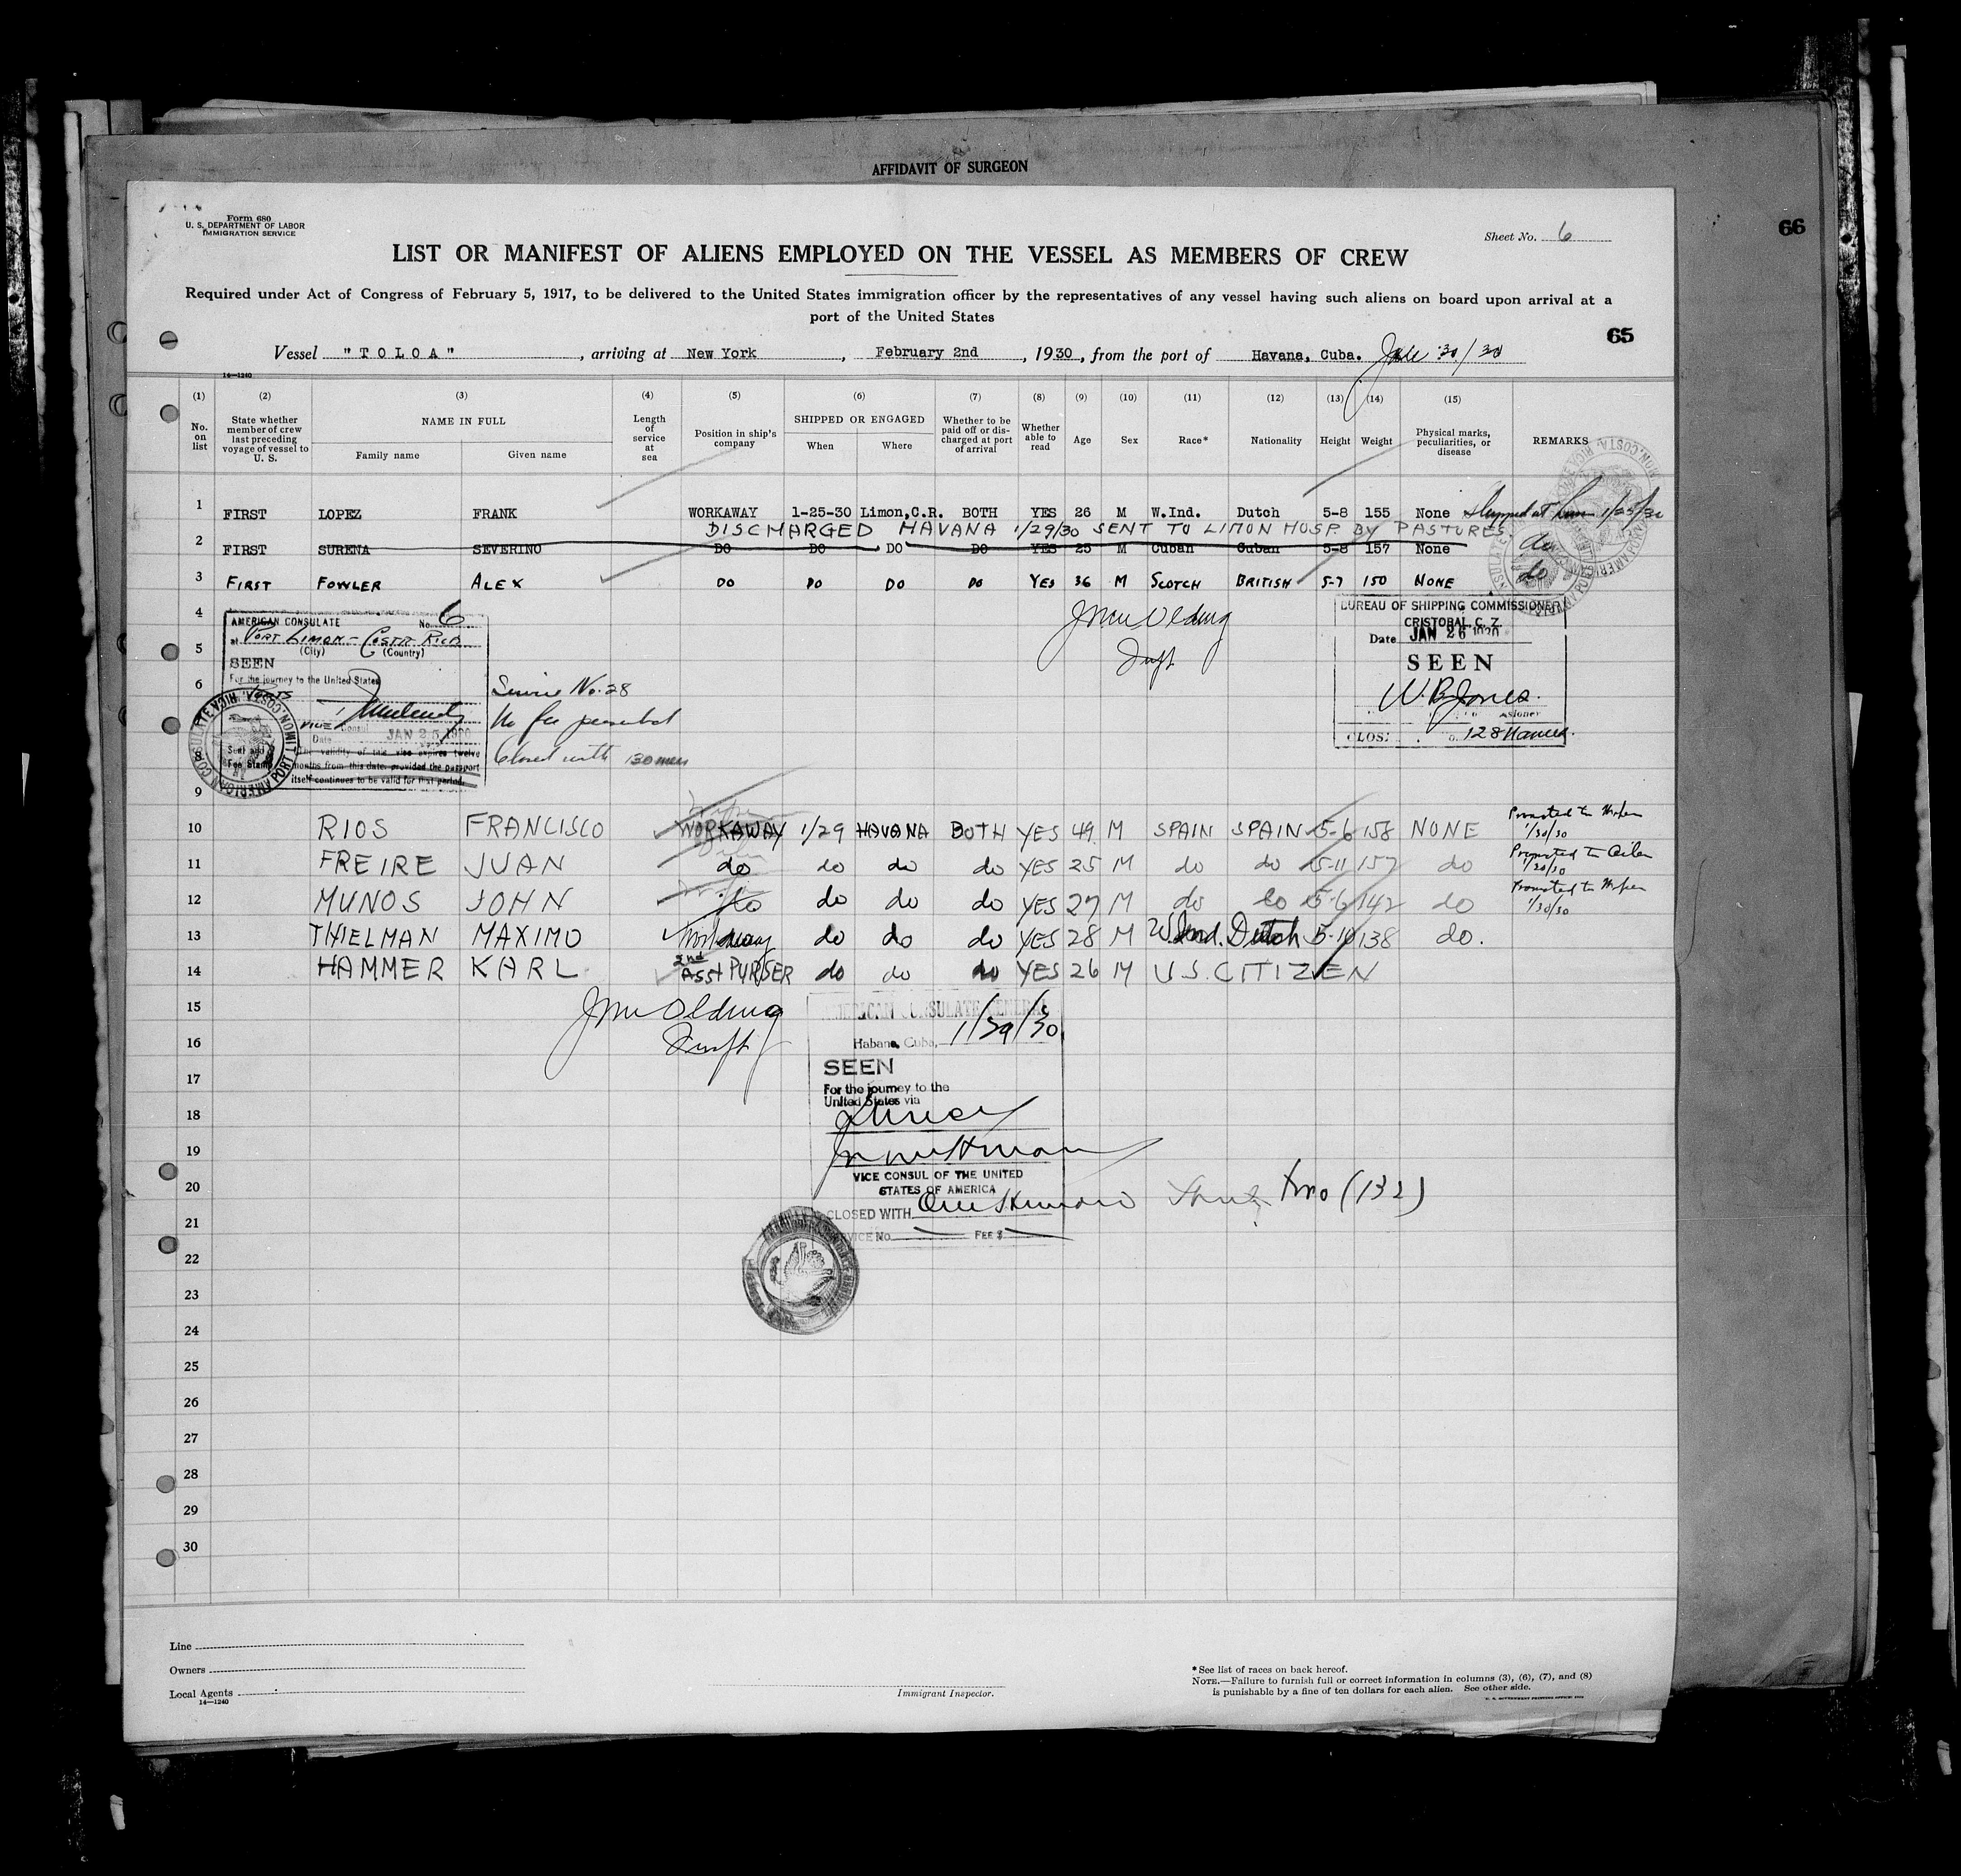 AFFIDAVIT OF SURGEON
66
Form 680
U. S. DEPARTMENT OF LABOR
IMMIGRATION SERVICE
Sheet No. 6
LIST OR MANIFEST OF ALIENS EMPLOYED ON THE VESSEL AS MEMBERS OF CREW
Required under Act of Congress of February 5, 1917, to be delivered to the United States immigration officer by the representatives of any vessel having such aliens on board upon arrival at a
port of the United States
65
Vessel "TOLOA", arriving at New York, February 2nd, 1930, from the port of Havana, Cuba. 30/30
14—1240
(1) (2) (3) (4) (5) (6) (7) (8) (9) (10) (11) (12) (13) (14) (15)
No. on list
State whether member of crew last preceding voyage of vessel to U. S.
NAME IN FULL
Family name
Given name
Length of service at sea
Position in ship's company
SHIPPED OR ENGAGED
When
Where
Whether to be paid off or discharged at port of arrival
Whether able to read
Age
Sex
Race*
Nationality
Height
Weight
Physical marks, peculiarities, or disease
REMARKS
1 FIRST LOPEZ FRANK WORKAWAY 1-25-30 Limon,C.R. BOTH YES 26 M W.Ind. Dutch 5-8 155 None Shipped at Limon 1/25/30
DISCHARGED HAVANA 1/29/30 SENT TO LIMON HOSP. BY PASTURES
2 FIRST SURENA SEVERINO DO DO DO DO YES 25 M Cuban Cuban 5-8 157 None do
3 FIRST FOWLER ALEX DO DO DO DO YES 36 M SCOTCH BRITISH 5-7 150 NONE do
4
5
6
8
9
AMERICAN CONSULATE No. 6
at PORT LIMON - COSTA RICA
(City) (Country)
SEEN
For the journey to the United States
VICE Consul
Date JAN 25 1930
The validity of this visa expires twelve
months from this date, provided the passport
itself continues to be valid for that period.
Seal and
Fee Stamp
AMERICAN CONSULATE PORT LIMON, COSTA RICA
Service No. 28
No fee
Closed with 130 men
BUREAU OF SHIPPING COMMISSIONER
CRISTOBAL, C. Z.
Date JAN 26 1930
SEEN
W. B. Jones.
128 Names.
10 RIOS FRANCISCO WORKAWAY 1/29 HAVANA BOTH YES 49 M SPAIN SPAIN 5-6 158 NONE Promoted to Wiper 1/30/30
11 FREIRE JUAN do do do do YES 25 M do do 5-11 157 do Promoted to Oiler 1/30/30
12 MUNOS JOHN do do do do YES 27 M do do 5-6 142 do Promoted to Wiper 1/30/30
13 THIELMAN MAXIMO Workaway do do do YES 28 M W.Ind. Dutch 5-10 138 do.
14 HAMMER KARL 2nd ASST PURSER do do do YES 26 M U.S. CITIZEN
15
16
17
18
19
20
21
22
23
24
25
26
27
28
29
30
AMERICAN CONSULATE GENERAL
Habana, Cuba, 1/29/30
SEEN
For the journey to the
United States via
VICE CONSUL OF THE UNITED
STATES OF AMERICA
CLOSED WITH One Hundred Thirty two (132)
SERVICE No. FEE $
Line
Owners
Local Agents
14—1240
Immigrant Inspector.
*See list of races on back hereof.
NOTE.—Failure to furnish full or correct information in columns (3), (6), (7), and (8)
is punishable by a fine of ten dollars for each alien. See other side.